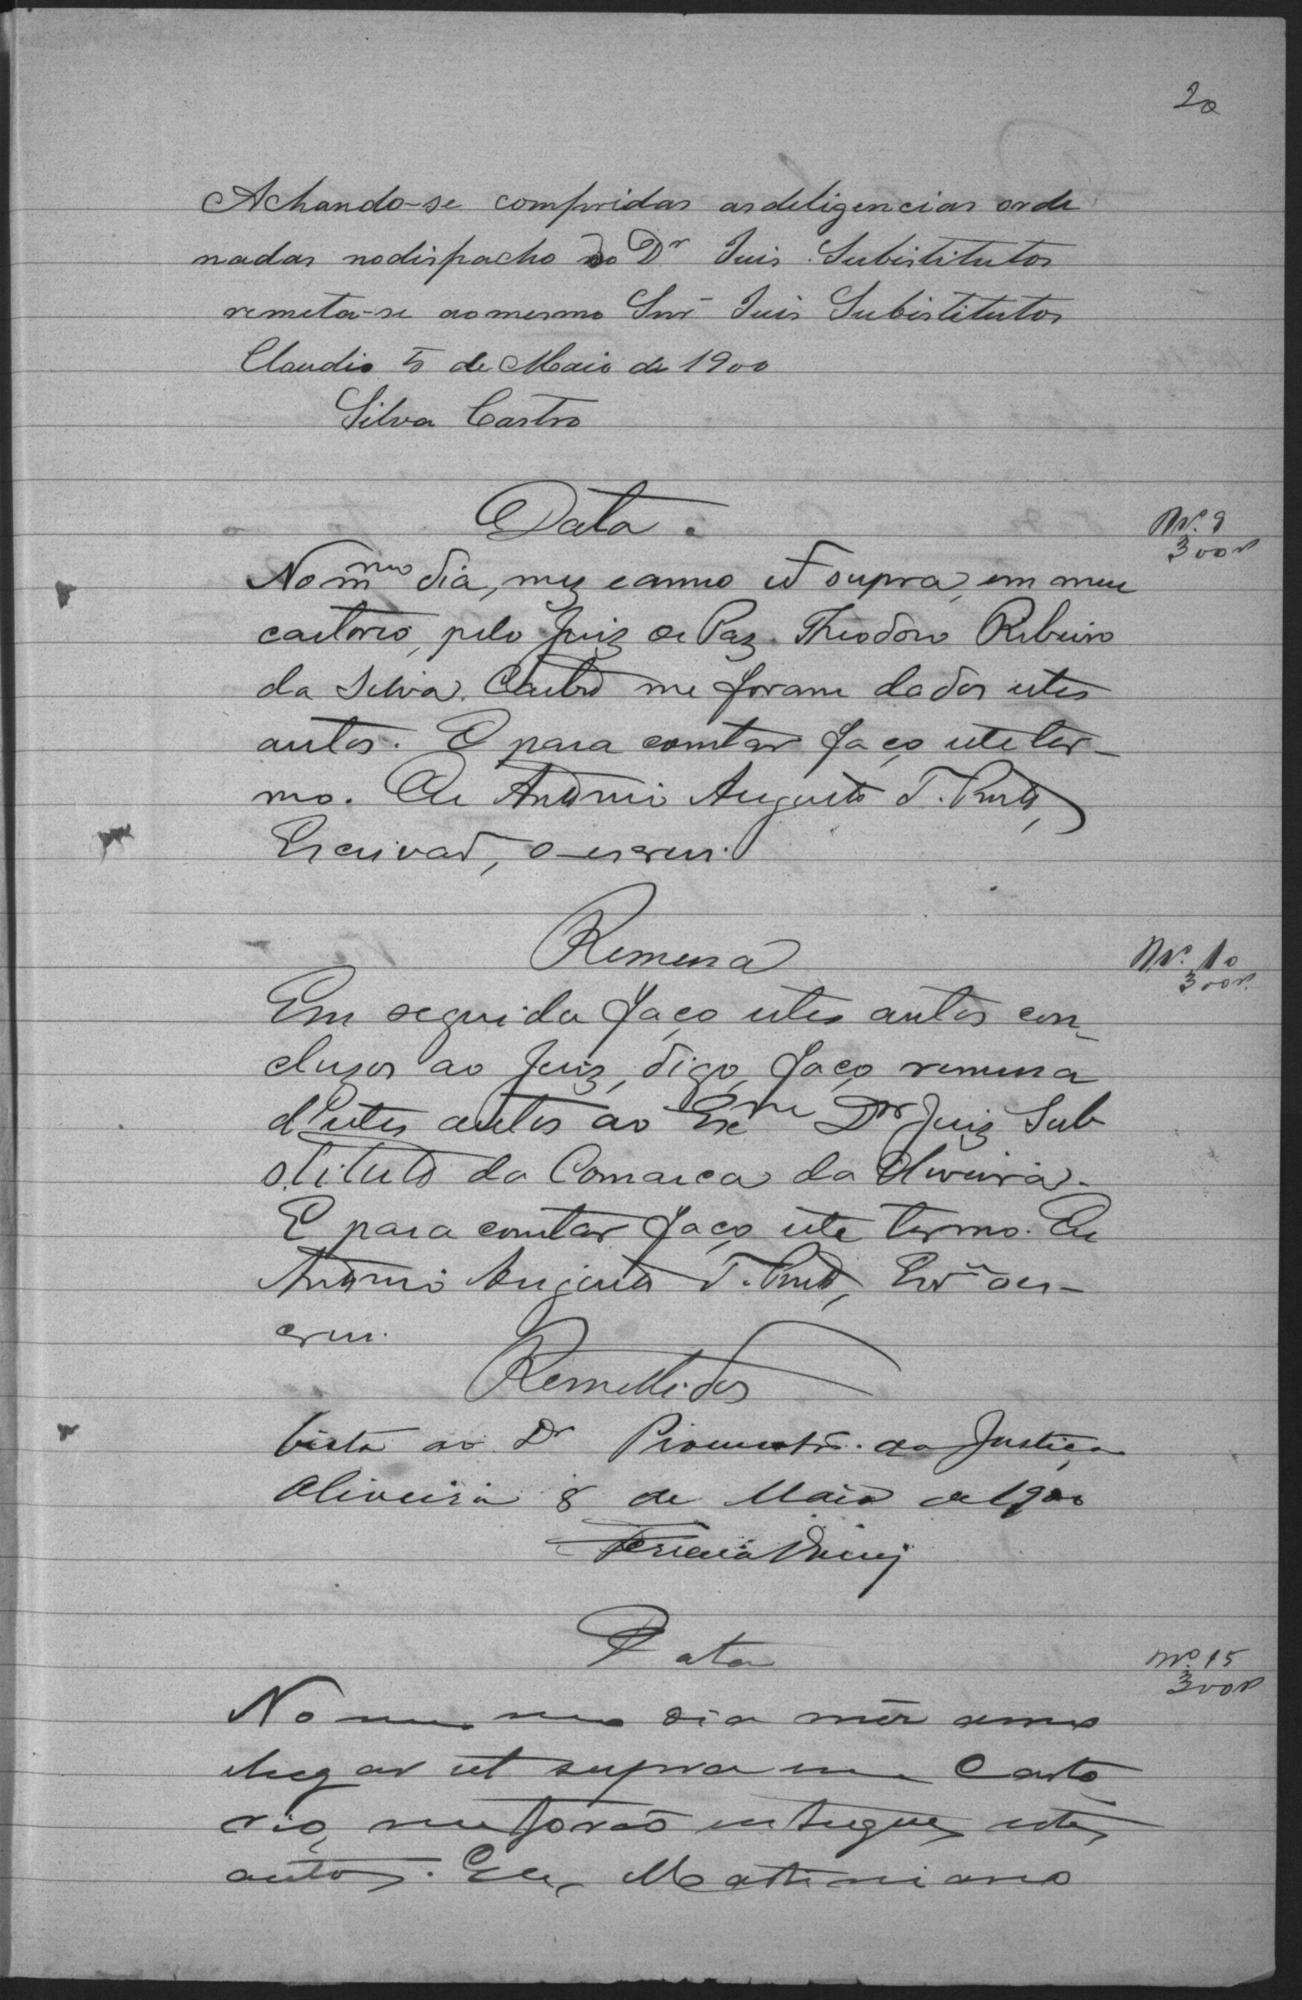 20
Achando-se compridas asdeligencias orde
nadas nodispacho do Dr Juis Subistitutos
remeta-se aomesmo Snr Juis Subistitutos
Claudio 5 de Maio de 1900
Silva Castro
Data.
Nº 9
300rs
No mmo dia, mez eanno ut supra, em meu
cartorio, pelo Juiz de Paz Theodoro Ribeiro
da Silva Castro me foram dados estes
autos. E para constar faço este ter-
mo. Eu Antonio Augusto T. Prata,
Escrivaõ, o escrevi.
Remessa
Nº 10
300rs.
Em seguida faço estes autos con-
cluzos ao Juiz, digo, faço remessa
d'estes autos ao Exmo Dr Juiz Sub
stituto da Comarca da Oliveira.
E para constar faço este termo. Eu
Antonio Augusto T. Prata, Escm oes-
crevi.
Remettidos
Vista ao Dr Promotor da Justiça
Oliveira 8 de Maio de 1900
Data
Nº 15
300rs
No mesmo dia mês anno
elugar ut supra em Carto
rio, me forão entregues estes
autos. Eu, Martiniano